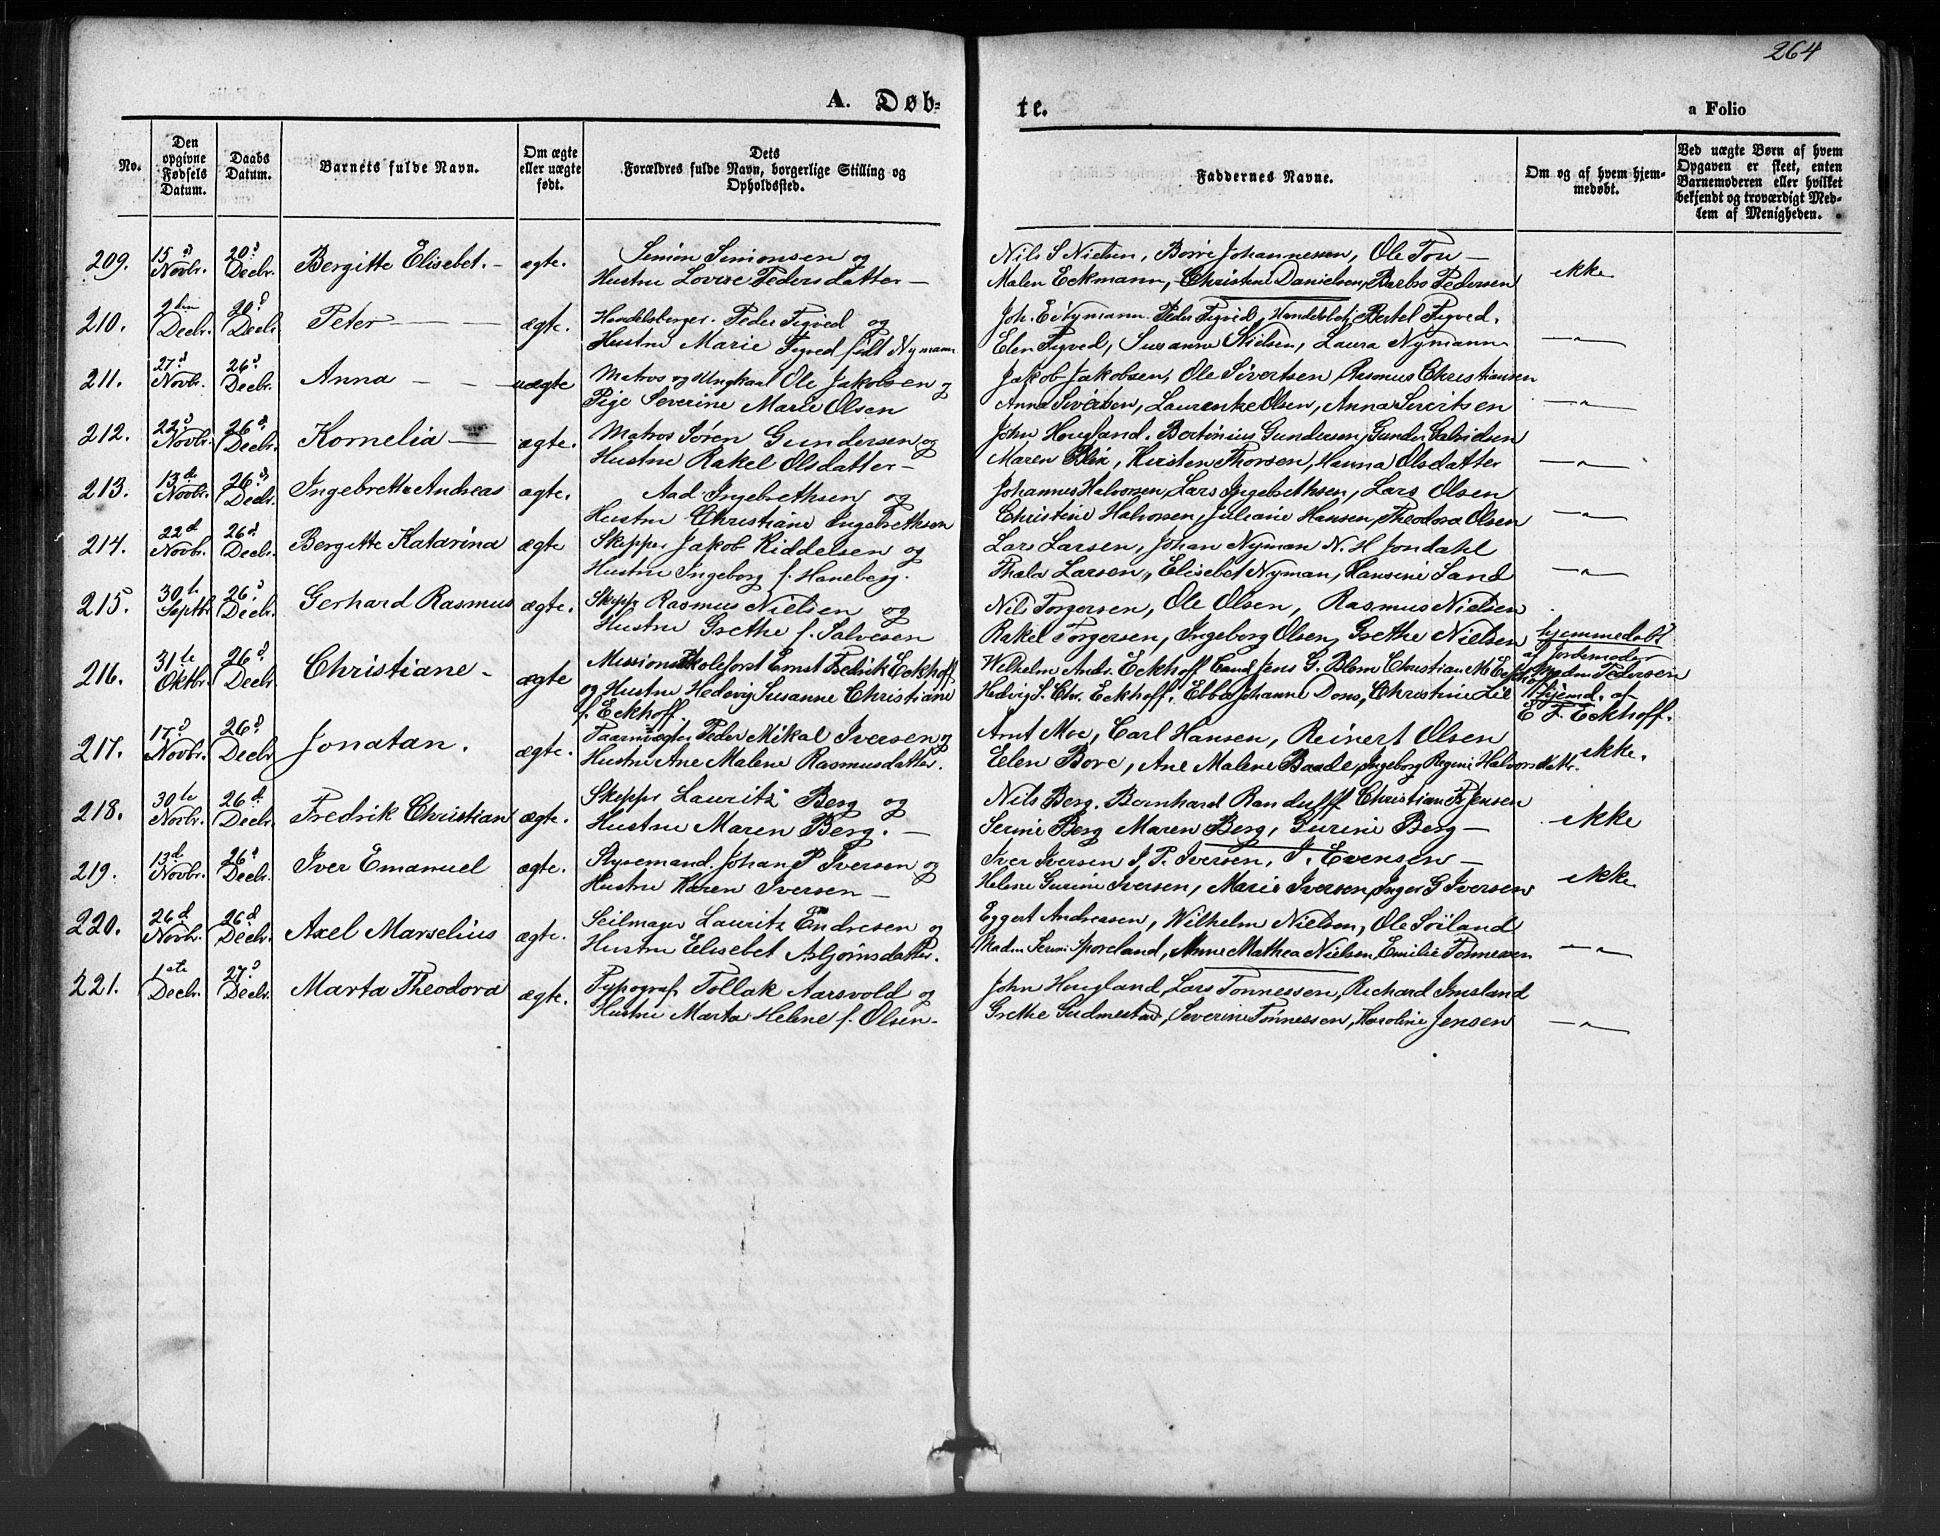 264
A. Døb-
te.
a Folio
No.
Den opgivne Fødsels Datum.
Daabs Datum.
Barnets fulde Navn.
Om ægte eller uægte født.
Dets Forældres fulde Navn, borgerlige Stilling og Opholdssted.
Faddernes Navne.
Om og af hvem hjemmedøbt.
Ved uægte Børn af hvem Opgaven er skeet, enten Barnemoderen eller hvilket bekjendt og troværdigt Medlem af Menigheden.
209. 15d Novbr. 20d Decbr. Bergitte Elisebet. – ægte. Simon Simonsen og
Hustru Lovise Pedersdatter –
Nils S Nielsen, Børre Johannesen, Ole Tou –
Malen Eckmann, Christine Danielsen, Barbro Pedersen ikke
210. 2den Decbr. 20d Decbr. Peter – – ægte. Handelsborger. Peder Figved og
Hustru Marie Figved født Nymann
Joh. E. Nymann Peder Figved, Handelsbetj Bertel Figved.
Elen Figved, Susanne Nielsen, Laura Nymann – " –
211. 27d Novbr. 26d Decbr. Anna – – uægte Matros og Ungkaal Ole Jakobsen og
Pige Severine Marie Olsen
Jakob Jakobsen, Ole Sivertsen Rasmus Christiansen
Anna Sivertsen, Laurentze Olsen, Anna Sivertsen – " –
212. 22d Novbr. 26d Decbr. Kornelia – ægte. Matros Søren Gundersen og
Hustru Rakel Olsdatter –
John Hougland. Bertinius Gundersen, Gunder Gabrielsen
Maren Blix, Kirsten Thorsen, Hanna Olsdatter – " –
213. 13d Novbr. 26d Decbr. Ingebreth Andreas ægte. Aad Ingebrethsen og
Hustru Christiane Ingebrethsen
Johannes Halvorsen, Lars Ingebrethsen, Lars Olsen
Christine Halvorsen, Juliane Hansen, Theodora Olsen – " –
214. 22d Novbr. 26d Decbr. Bergitte Katarina ægte Skipper Jakob Riddelsen og
Hustru Ingeborg f. Haneberg.
Lars Larsen, Johan Nyman N. H Jondahl
Thala Larsen, Elisebet Nyman, Hansine Sand – " –
215. 30te Septbr 26d Decbr. Gerhard Rasmus ægte. Skipp Rasmus Nielsen og
Hustru Grethe f. Salvesen
Nils Torgersen, Ole Olsen, Rasmus Nielsen
Rakel Torgersen, Ingeborg Olsen, Grethe Nielsen hjemmedøbt
af Jordemoder
Madm Pedersen
216. 31te Oktbr. 26d Decbr. Christiane – ægte Missions Skoleforst Ernst Fredrik Eckhoff
og Hustru Hedevig Susanne Christiane
f. Eckhoff.
Wilhelm Andr. Eckhoff Cand Jens G. Blom Christian M. Eckhoff
Hedvig S. Chr. Eckhoff. Ebba Johanne Dons, Christine Lie hjemd. af
E F. Eckhoff.
217. 17d Novbr. 26d Decbr Jonatan. ægte. Taarnvægter Peder Mikal Iversen og
Hustru Ane Malene Rasmusdatter.
Arnt Moe, Carl Hansen, Reinert Olsen
Elen Bore, Ane Malene Baade, Ingeborg Regine Halvorsdattr. ikke.
218. 30te Novbr. 26d Decbr. Fredrik Christian ægte. Skipper Lauritz Berg og
Hustru Maren Berg. –
Nils Berg. Bernhard Randulff Christian F. Jensen
Serine Berg Maren Berg, Gurine Berg – ikke
219. 13d Novbr. 26d Decbr. Iver Emanuel ægte. Styremand. Johan P Iversen og
Hustru Karen Iversen –
Iver Iversen J. P. Iversen, J. Evensen –
Helene Gurine Iversen, Marie Iversen, Inger G Iversen ikke
220. 26d Novbr. 26d Decbr. Axel Marselius ægte. Seilmager Lauritz Endresen og
Hustru Elisebet Asbjørnsdatter.
Eggert Andreasen, Wilhelm Nielsen, Ole Soiland
Madm Serine Sporeland, Anne Mathea Nielsen, Emilie Tønnessen – " –
221. 1ste Decbr. 27d Decbr. Marta Theodora ægte. Typograf Tollak Aarsvold og
Hustru Marta Helene f. Olsen –
John Hougland, Lars Tønnessen, Richard Imsland
Grethe Gudmestad, Severine Tønnessen, Karoline Jensen – " –